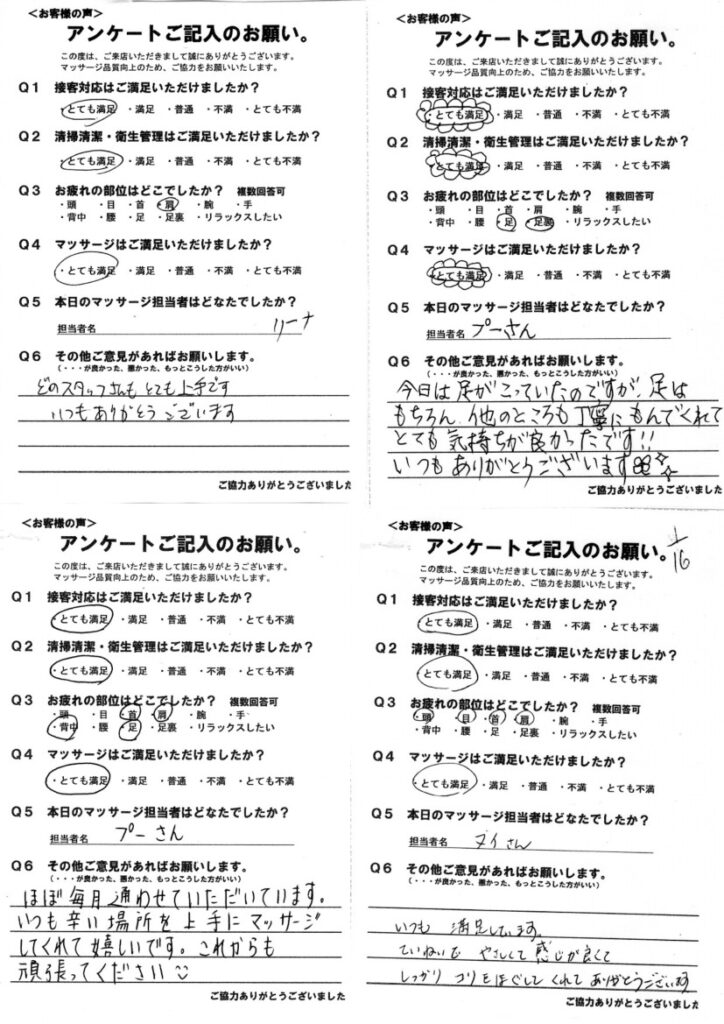 ＜お客様の声＞
アンケートご記入のお願い。
この度は、ご来店いただきまして誠にありがとうございます。
マッサージ品質向上のため、ご協力をお願いいたします。
Q1 接客対応はご満足いただけましたか？
・とても満足 ・満足 ・普通 ・不満 ・とても不満
Q2 清掃清潔・衛生管理はご満足いただけましたか？
・とても満足 ・満足 ・普通 ・不満 ・とても不満
Q3 お疲れの部位はどこでしたか？ 複数回答可
・頭 ・目 ・首 ・肩 ・腕 ・手
・背中 ・腰 ・足 ・足裏 ・リラックスしたい
Q4 マッサージはご満足いただけましたか？
・とても満足 ・満足 ・普通 ・不満 ・とても不満
Q5 本日のマッサージ担当者はどなたでしたか？
担当者名 リーナ
Q6 その他ご意見があればお願いします。
（・・・が良かった、悪かった、もっとこうした方がいい）
どのスタッフさんもとても上手です
いつもありがとうございます
ご協力ありがとうございました
＜お客様の声＞
アンケートご記入のお願い。
この度は、ご来店いただきまして誠にありがとうございます。
マッサージ品質向上のため、ご協力をお願いいたします。
Q1 接客対応はご満足いただけましたか？
・とても満足 ・満足 ・普通 ・不満 ・とても不満
Q2 清掃清潔・衛生管理はご満足いただけましたか？
・とても満足 ・満足 ・普通 ・不満 ・とても不満
Q3 お疲れの部位はどこでしたか？ 複数回答可
・頭 ・目 ・首 ・肩 ・腕 ・手
・背中 ・腰 ・足 ・足裏 ・リラックスしたい
Q4 マッサージはご満足いただけましたか？
・とても満足 ・満足 ・普通 ・不満 ・とても不満
Q5 本日のマッサージ担当者はどなたでしたか？
担当者名 プーさん
Q6 その他ご意見があればお願いします。
（・・・が良かった、悪かった、もっとこうした方がいい）
今日は足がこっていたのですが、足は
もちろん、他のところも丁寧にもんでくれて
とても気持ちが良かったです!!
いつもありがとうございます
ご協力ありがとうございました
＜お客様の声＞
アンケートご記入のお願い。
この度は、ご来店いただきまして誠にありがとうございます。
マッサージ品質向上のため、ご協力をお願いいたします。
Q1 接客対応はご満足いただけましたか？
・とても満足 ・満足 ・普通 ・不満 ・とても不満
Q2 清掃清潔・衛生管理はご満足いただけましたか？
・とても満足 ・満足 ・普通 ・不満 ・とても不満
Q3 お疲れの部位はどこでしたか？ 複数回答可
・頭 ・目 ・首 ・肩 ・腕 ・手
・背中 ・腰 ・足 ・足裏 ・リラックスしたい
Q4 マッサージはご満足いただけましたか？
・とても満足 ・満足 ・普通 ・不満 ・とても不満
Q5 本日のマッサージ担当者はどなたでしたか？
担当者名 プーさん
Q6 その他ご意見があればお願いします。
（・・・が良かった、悪かった、もっとこうした方がいい）
ほぼ毎月通わせていただいています。
いつも辛い場所を上手にマッサージ
してくれて嬉しいです。これからも
頑張ってください
ご協力ありがとうございました
＜お客様の声＞
アンケートご記入のお願い。
1/16
この度は、ご来店いただきまして誠にありがとうございます。
マッサージ品質向上のため、ご協力をお願いいたします。
Q1 接客対応はご満足いただけましたか？
・とても満足 ・満足 ・普通 ・不満 ・とても不満
Q2 清掃清潔・衛生管理はご満足いただけましたか？
・とても満足 ・満足 ・普通 ・不満 ・とても不満
Q3 お疲れの部位はどこでしたか？ 複数回答可
・頭 ・目 ・首 ・肩 ・腕 ・手
・背中 ・腰 ・足 ・足裏 ・リラックスしたい
Q4 マッサージはご満足いただけましたか？
・とても満足 ・満足 ・普通 ・不満 ・とても不満
Q5 本日のマッサージ担当者はどなたでしたか？
担当者名 ヌイさん
Q6 その他ご意見があればお願いします。
（・・・が良かった、悪かった、もっとこうした方がいい）
いつも満足しています。
ていねいで やさしくて 感じが良くて
しっかり コリをほぐして くれて ありがとうございます
ご協力ありがとうございました